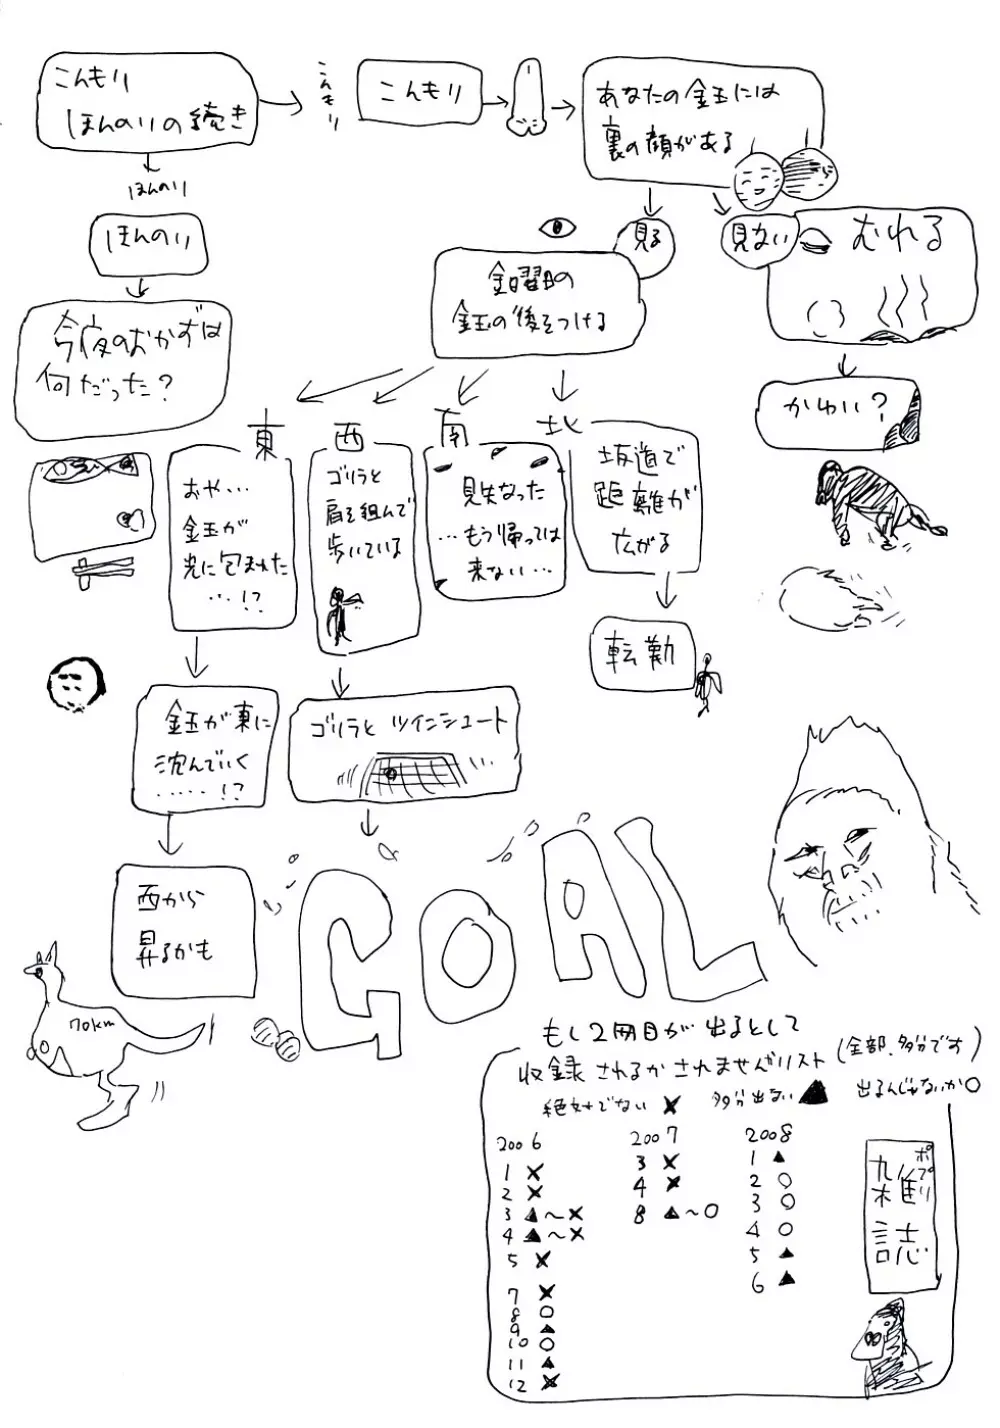 こんもり
ほんのりの続き
こんもり
こんもり
あなたの金玉には
裏の顔がある
ほんのり
ほんのり
今夜のおかずは
何だった?
見る
見ない
むれる
金曜日の
金玉の後をつける
かわいい?
東
西
南
北
おや…
金玉が
光に包まれた
…!?
ゴリラと
肩を組んで
歩いている
見失なった
…もう帰っては
来ない…
坂道で
距離が
広がる
転勤
金玉が東に
沈んでいく
……!?
ゴリラとツインシュート
西から
昇るかも
GOAL
70km
もし2冊目が出るとして
収録されるかされませんがリスト(全部、多分です)
絶対でない ✖ 多分出ない▲ 出るんじゃないか○
2006
1 ✖
2 ✖
3 ▲〜✖
4 ▲〜✖
5 ✖
7 ✖
8 ○
9 ▲
10 ○
11 ▲
12 ✖
2007
3 ✖
4 ✖
8 ▲〜○
2008
1 ▲
2 ○
3 ○
4 ○
5 ▲
6 ▲
ポプリ
雑誌